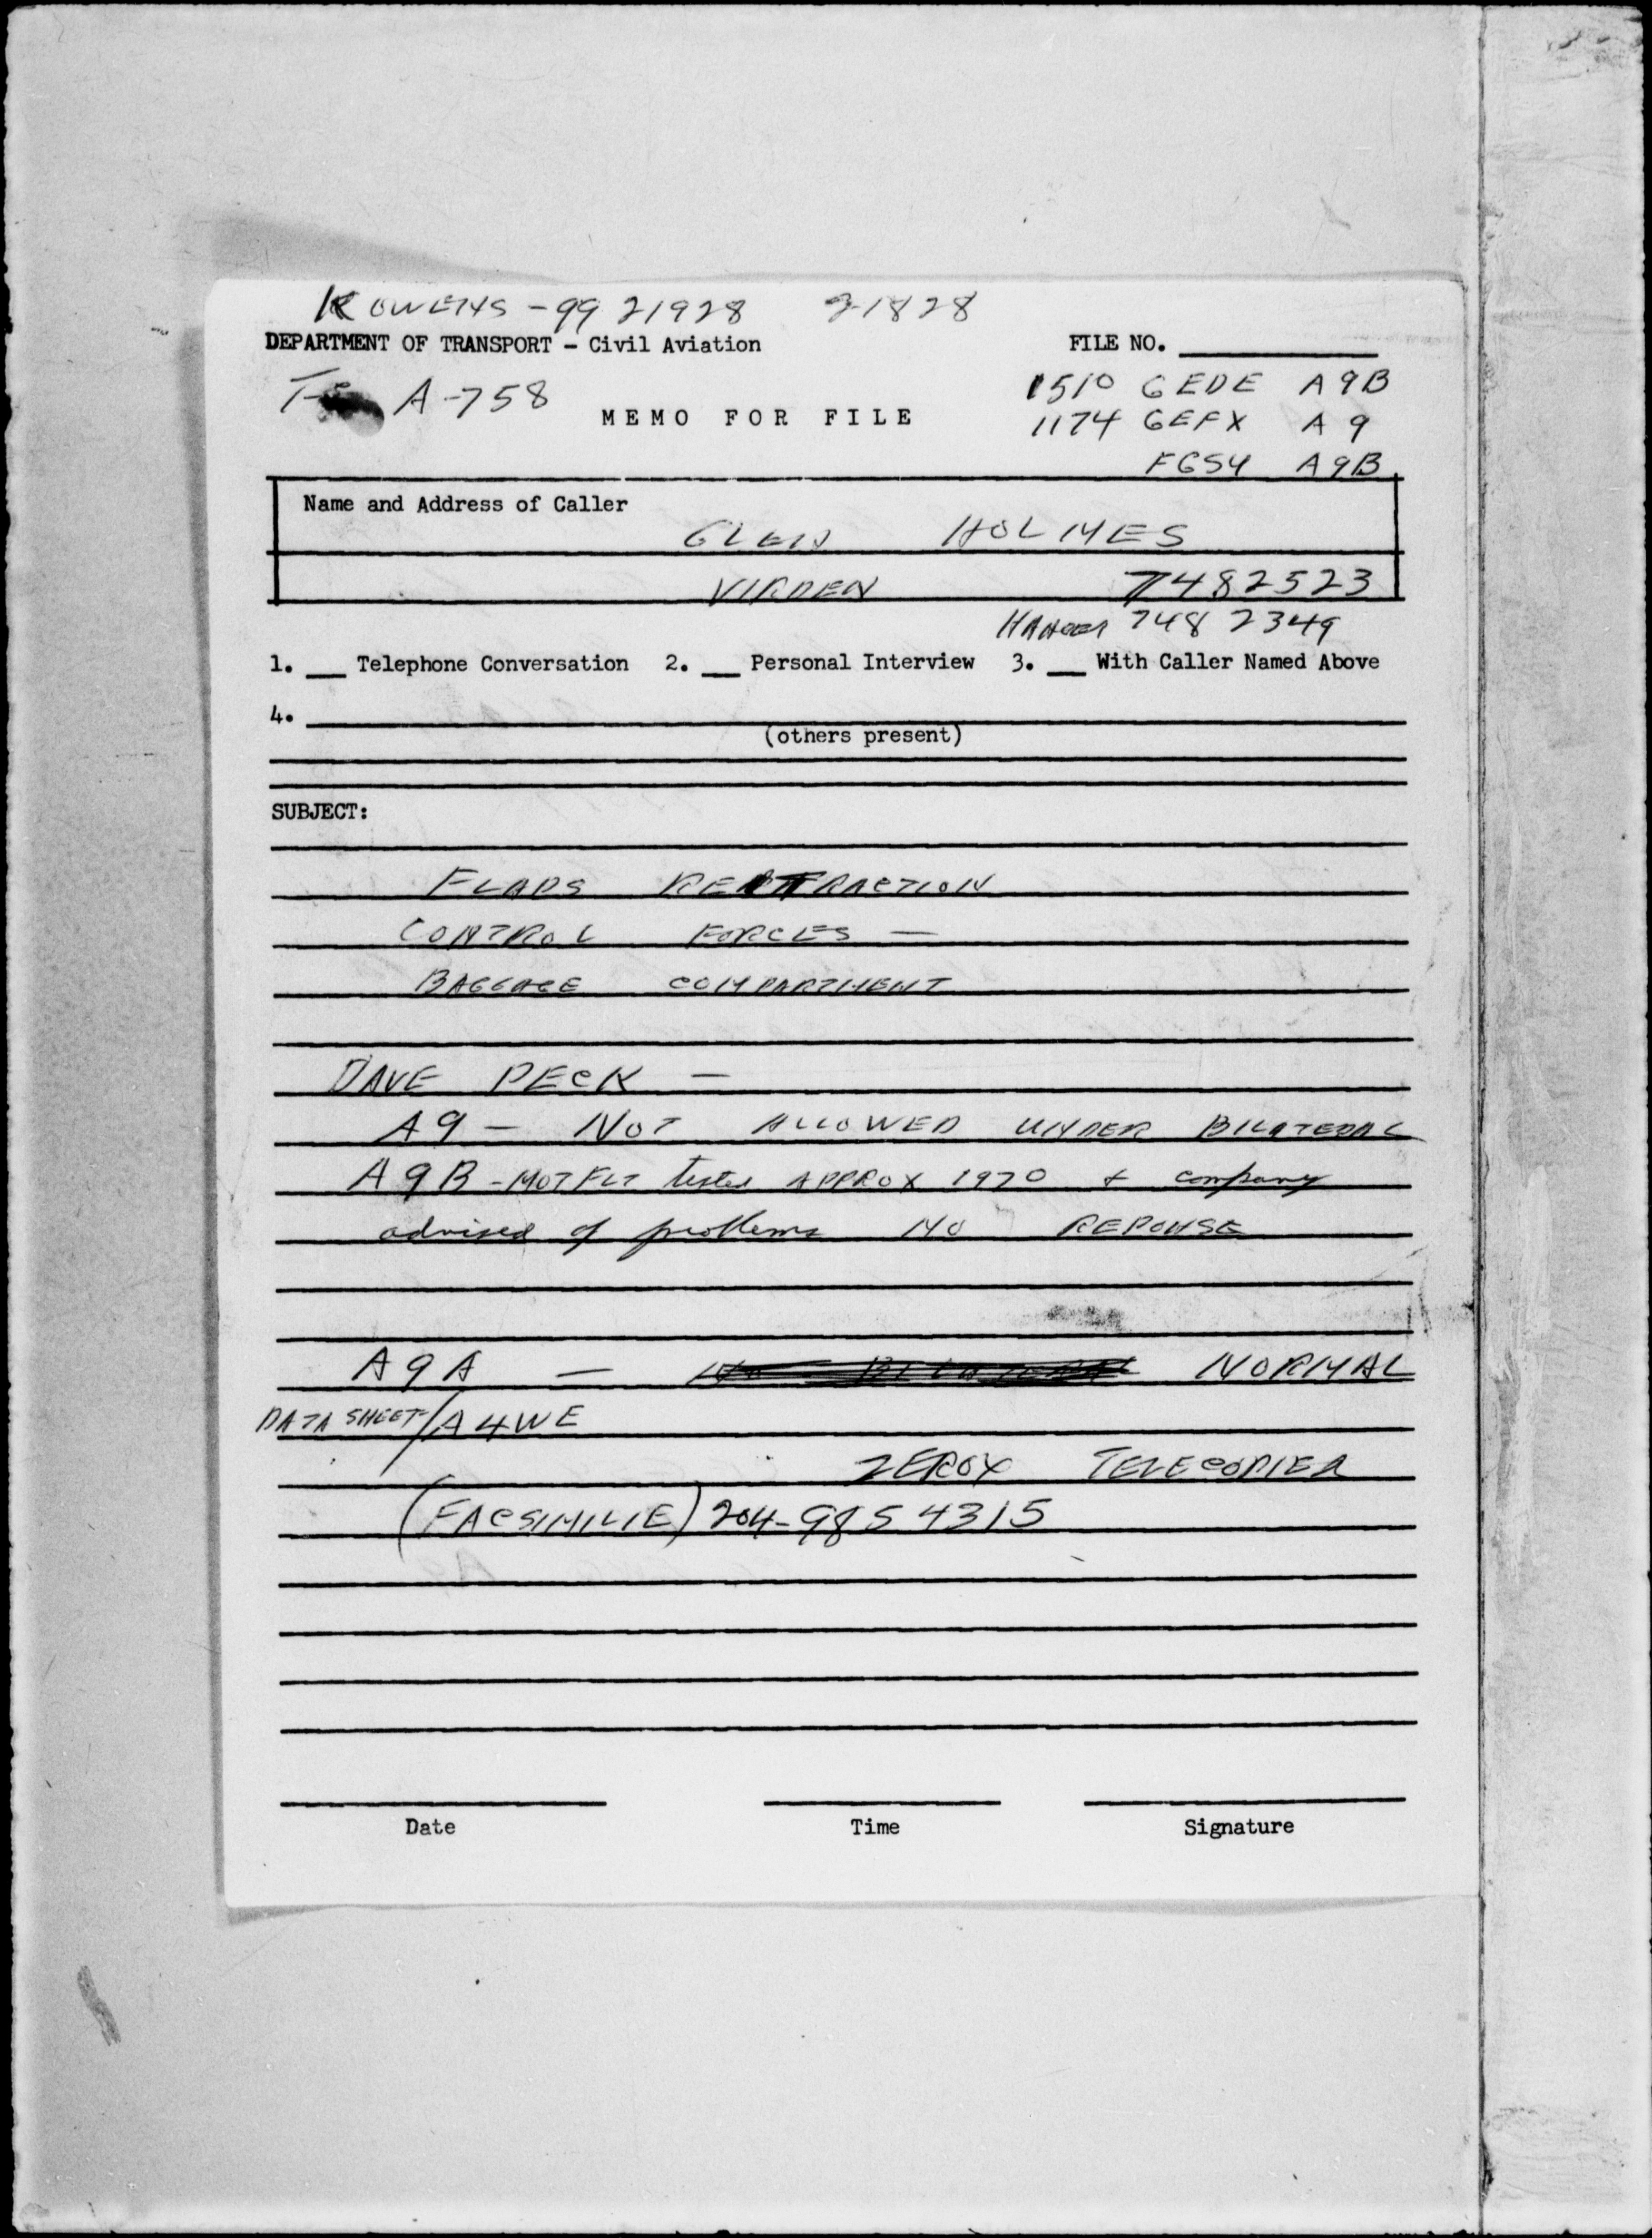 K OWENS - 99 21928 21828
DEPARTMENT OF TRANSPORT - Civil Aviation
FILE NO.
A-758
MEMO FOR FILE
1510 GEDE A9B
1174 GEFX A9
FGSY A9B
Name and Address of Caller
GLEN HOLMES
VIRDEN 7482523
HANGER 748 2349
1. __ Telephone Conversation 2. __ Personal Interview 3. __ With Caller Named Above
4.
(others present)
SUBJECT:
FLAPS RETRACTION
CONTROL FORCES -
BAGGAGE COMPARTMENT
DAVE PECK -
A9 - NOT ALLOWED UNDER BILATERAL
A9B - MOT FLT tested APPROX 1970 + company
advised of problems NO REPONSE
A9A - NORMAL
DATA SHEET / A4WE
ZEROX TELECOPIER
(FACSIMILIE) 204-985 4315
Date Time Signature